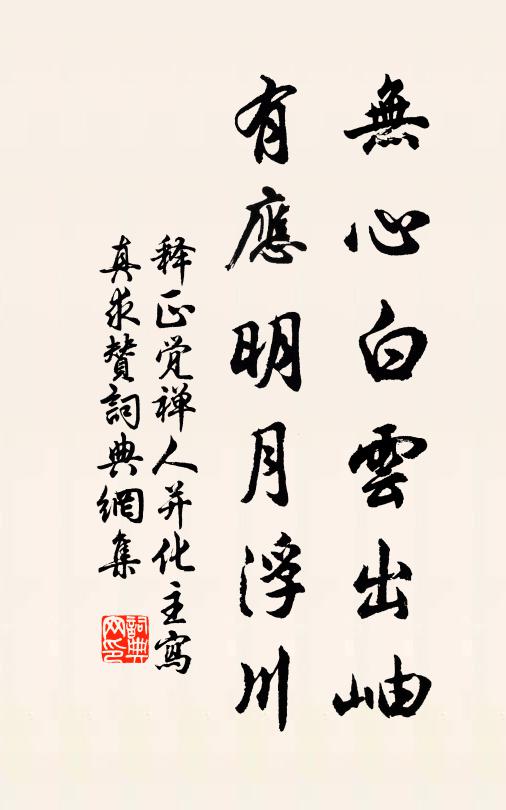 無心白雲出岫
有應明月浮川
释正觉禅人并化主寫
真求贊詞典網集
詞典网印